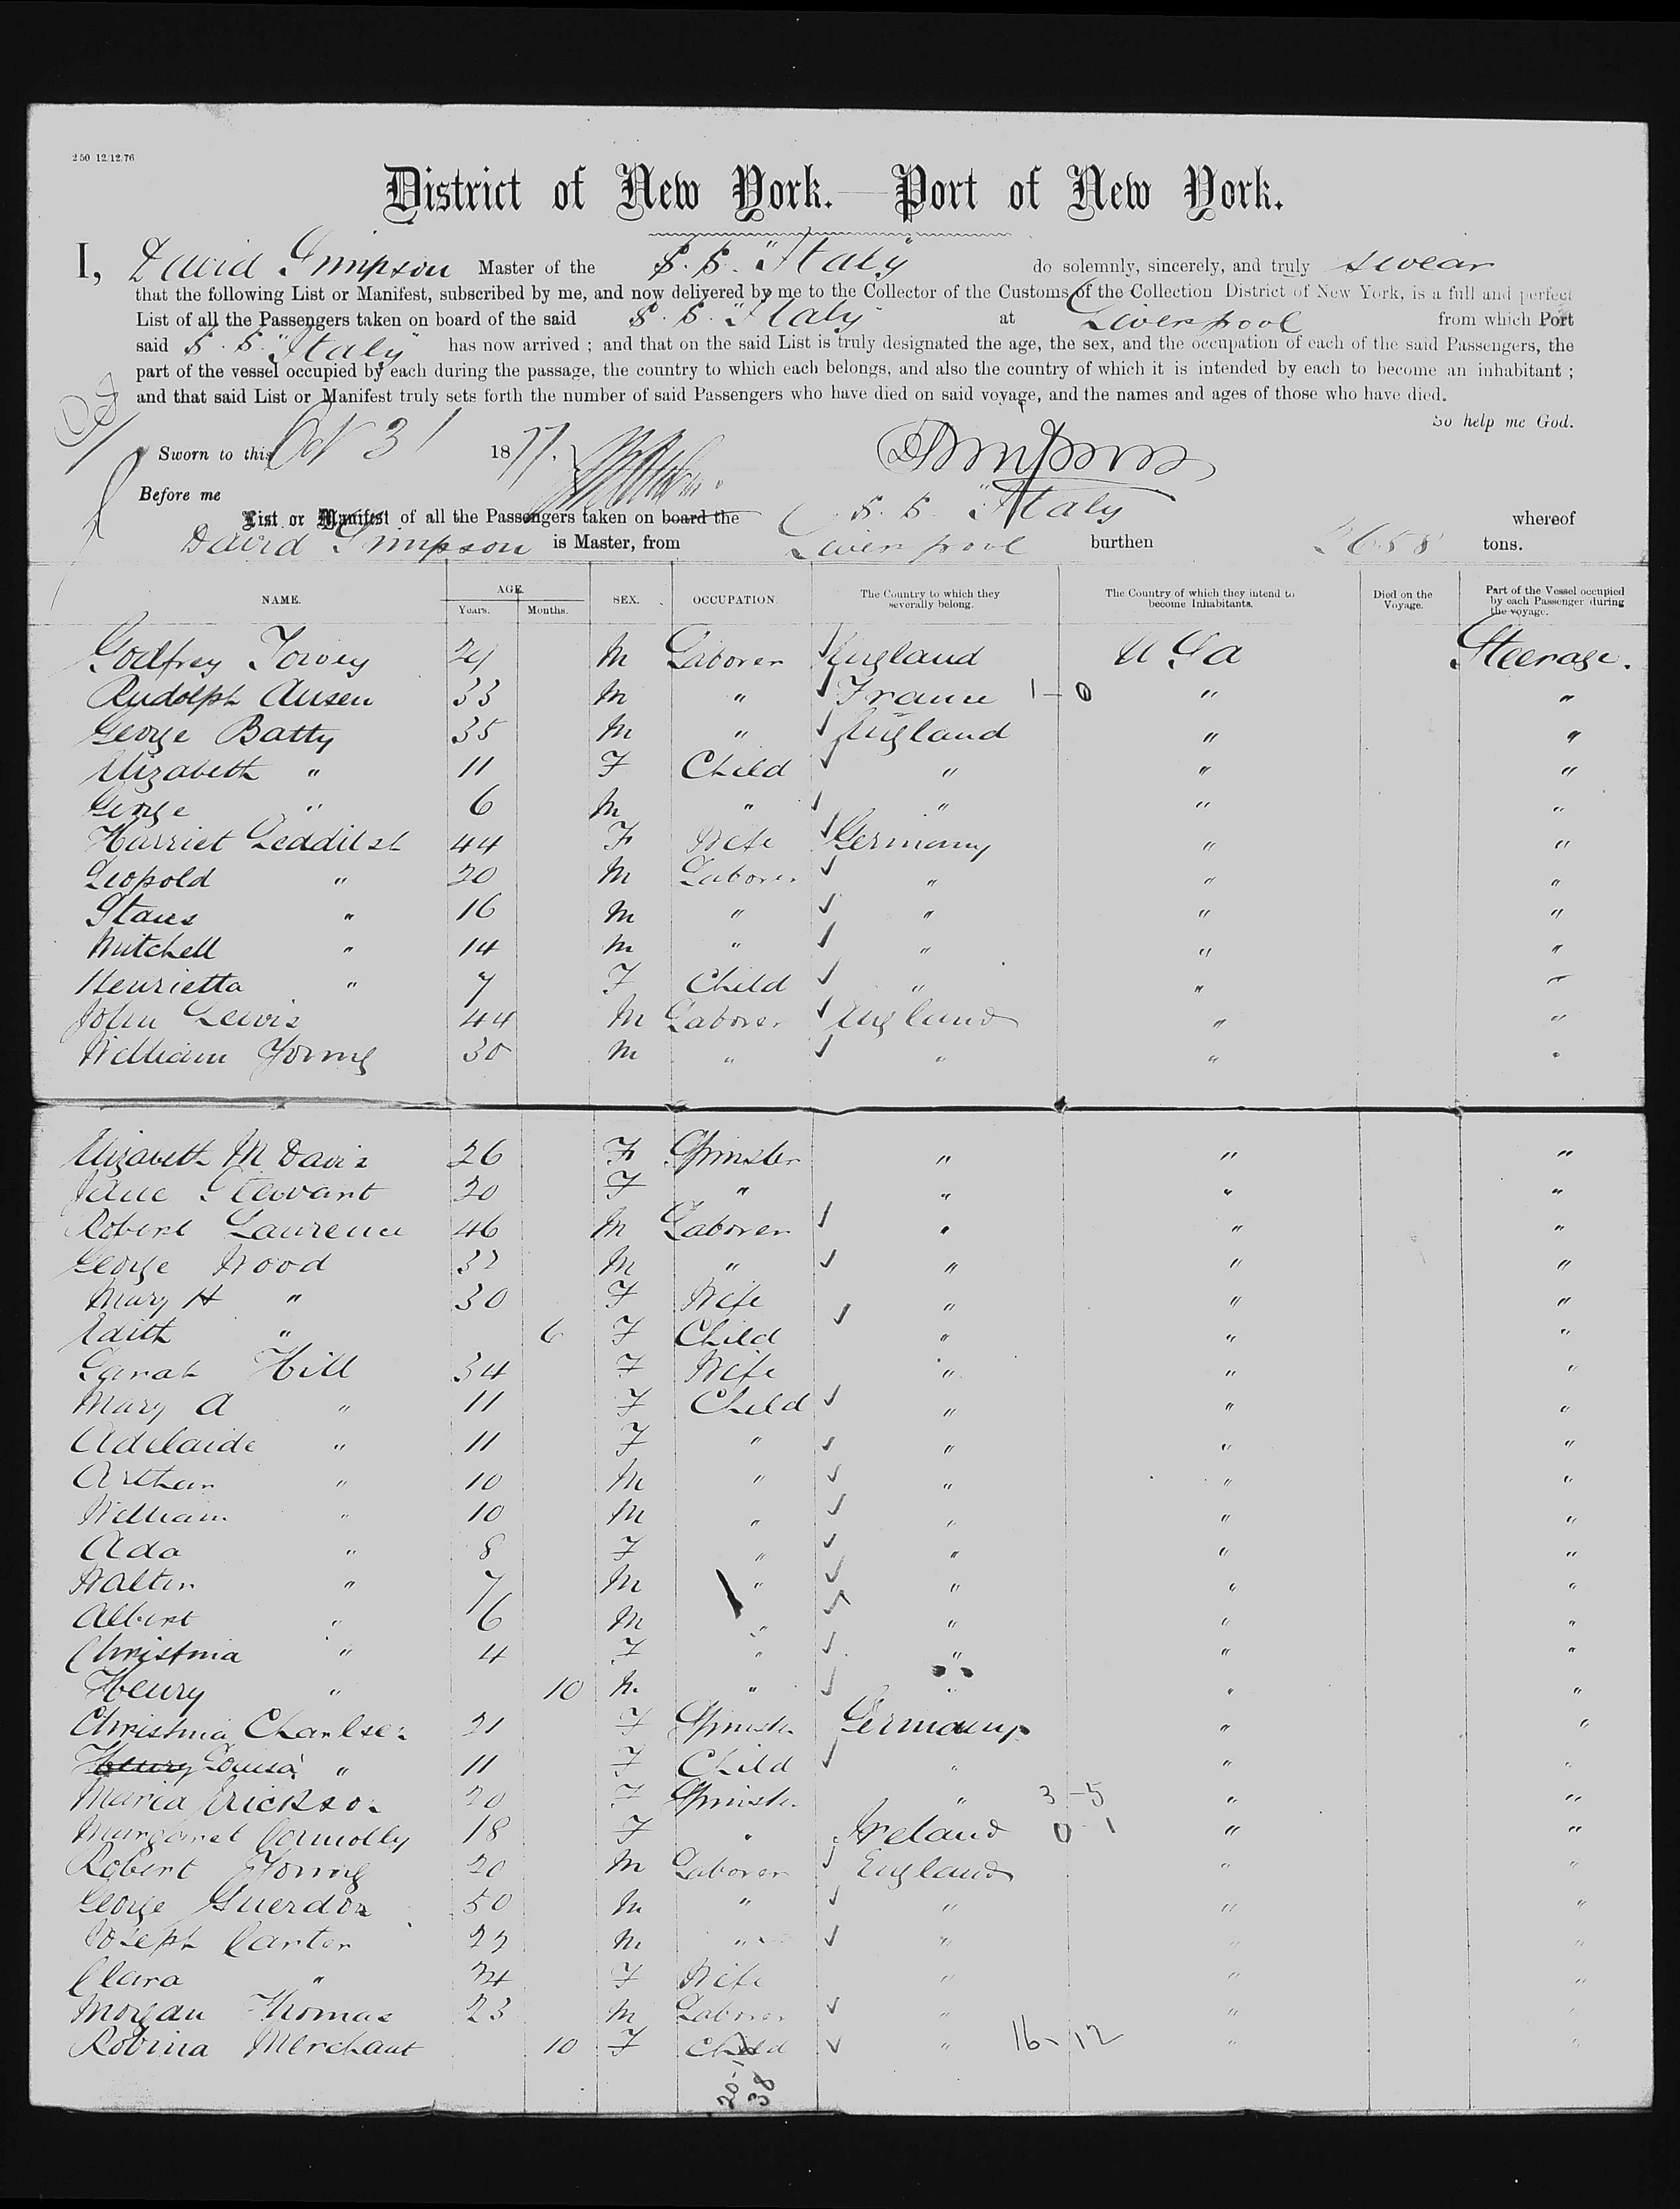 250 12/12/76
District of New York.—Port of New York.
I, David Simpson Master of the S. S. "Italy" do solemnly, sincerely, and truly swear
that the following List or Manifest, subscribed by me, and now delivered by me to the Collector of the Customs of the Collection District of New York, is a full and perfect
List of all the Passengers taken on board of the said S. S. "Italy" at Liverpool from which Port
said S. S. "Italy" has now arrived ; and that on the said List is truly designated the age, the sex, and the occupation of each of the said Passengers, the
part of the vessel occupied by each during the passage, the country to which each belongs, and also the country of which it is intended by each to become an inhabitant ;
and that said List or Manifest truly sets forth the number of said Passengers who have died on said voyage, and the names and ages of those who have died.
So help me God.
Sworn to this Oct 31 1877. DSimpson
Before me
List or Manifest of all the Passengers taken on board the S. S. "Italy whereof
David Simpson is Master, from Liverpool burthen tons.
NAME. AGE. Years. Months. SEX. OCCUPATION. The Country to which they severally belong. The Country of which they intend to become Inhabitants. Died on the Voyage. Part of the Vessel occupied by each Passenger during the voyage.
Godfrey M Laborer England U Sa Steerage.
Rudolph Ausen 33 M " France 1-0 " "
George Batty 35 M " England " "
Elizabeth " 11 F Child " " "
George " 6 M " " " "
Harriet 44 F Wife Germany " "
Leopold " 20 M Laborer " " "
" 16 M " " " "
Mitchell " 14 M " " " "
Henrietta " 7 F Child " " "
John Lewis 44 M Laborer England " "
William Young 30 M " " " "
Elizabeth M Davis 26 F Spinster " " "
Jane Stewart 20 F " " " "
Robert Laurence 46 M Laborer " " "
George Wood M " " " "
Mary H " 30 F Wife " " "
Edith " 6 F Child " " "
Sarah Hill 34 F Wife " " "
Mary A " 11 F Child " " "
Adelaide " 11 F " " " "
Arthur " 10 M " " " "
William " 10 M " " " "
Ada " 8 F " " " "
Walter " 7 M " " " "
Albert " 6 M " " " "
Christina " 4 F " " " "
Henry " 10 M " " " "
Christina 21 F Spinster Germany " "
Henry Louisa " 11 F Child " " "
Maria Erickson 20 F Spinster " 3-5 " "
Margaret Connolly 18 F " Ireland 0-1 " "
Robert Young 20 M Laborer England " "
George Guerdon 50 M " " " "
Joseph Carter M " " " "
Clara " 24 F Wife " " "
Morgan Thomas 23 M Laborer " " "
Robina Merchant 10 F Child " 16-12 " "
38